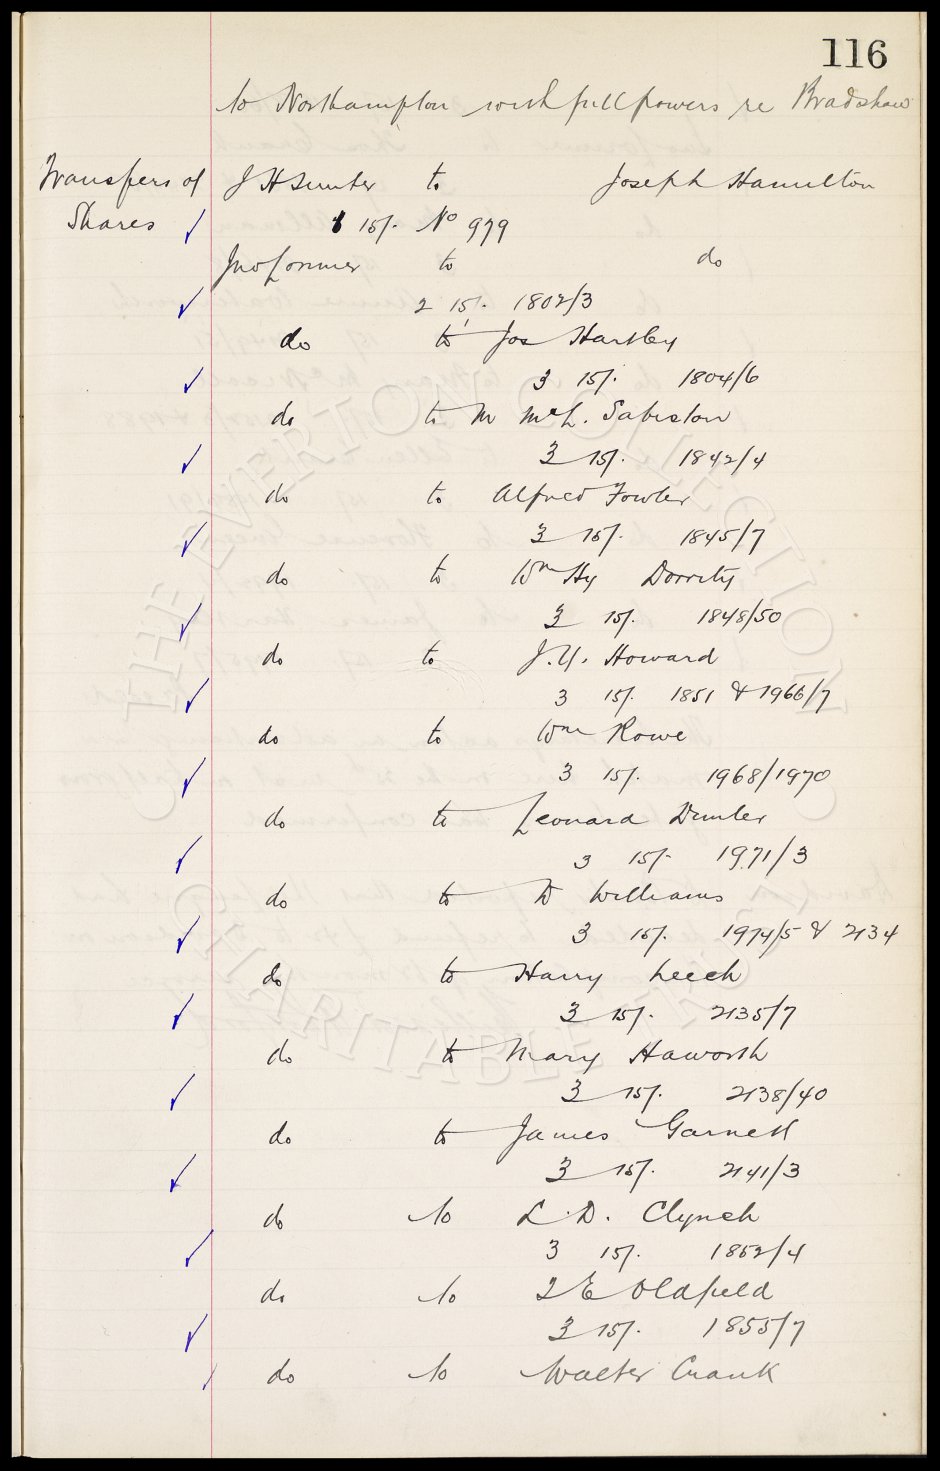 116
to Northampton with full powers re Bradshaw
Transfers of J H Sumter to Joseph Hamilton
Shares 1 15/- No 979
Jno Lorimer to do
2 15/- 1802/3
do to Jos Hartley
3 15/- 1804/6
do to M McL. Sabiston
3 15/- 1842/4
do to Alfred Fowler
3 15/- 1845/7
do to Wm Hy Dorrity
3 15/- 1848/50
do to J.Y. Howard
3 15/- 1851 & 1966/7
do to Wm Rowe
3 15/- 1968/1970
do to Leonard Dimler
3 15/- 1971/3
do to D Williams
3 15/- 1974/5 & 2134
do to Harry Leech
3 15/- 2135/7
do to Mary Haworth
3 15/- 2138/40
do to James Garnett
3 15/- 2141/3
do to L.D. Clynch
3 15/- 1852/4
do to E Oldfield
3 15/- 1855/7
do to Walter Crank
THE EVERTON COLLECTION
CHARITABLE TRUST